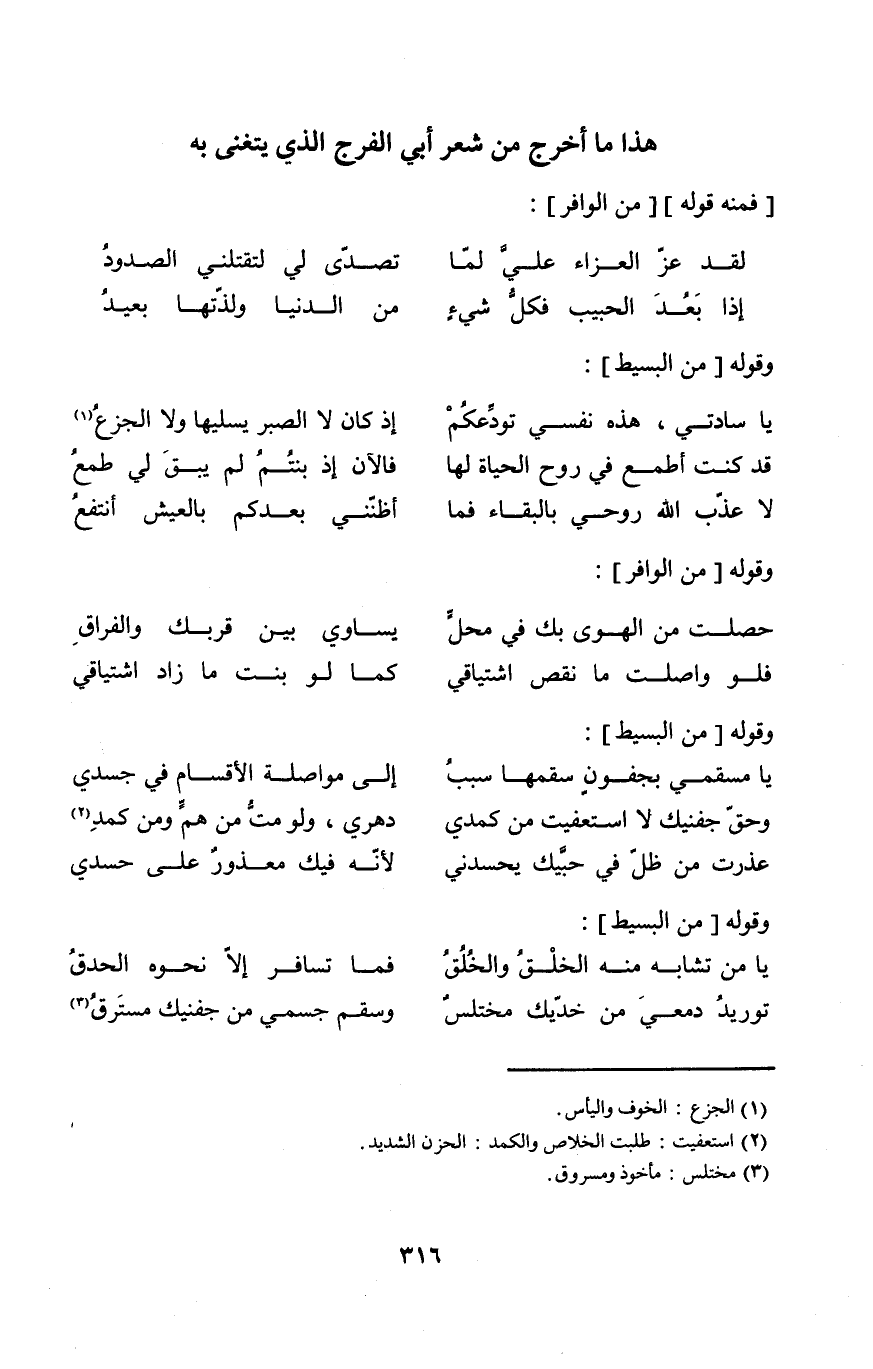 هذا ما أخرج من شعر أبي الفرج الذي يتغنى به
[ فمنه قوله ] [ من الوافر ] :
لقد عزّ العزاء عليَّ لمّا تصدّى لي لتقتلني الصدودُ
إذا بَعُدَ الحبيب فكلُّ شيءٍ من الدنيا ولذّتها بعيدُ
وقوله [ من البسيط ] :
يا سادتي ، هذه نفسي تودِّعكُمْ إذ كان لا الصبر يسليها ولا الجزعُ(١)
قد كنت أطمع في روح الحياة لها فالآن إذ بنتُمُ لم يبقَ لي طمعُ
لا عذّب الله روحي بالبقاء فما أظنّني بعدكم بالعيش أنتفعُ
وقوله [ من الوافر ] :
حصلت من الهوى بك في محلٍّ يساوي بين قربك والفراقِ
فلو واصلت ما نقص اشتياقي كما لو بنت ما زاد اشتياقي
وقوله [ من البسيط ] :
يا مسقمي بجفونٍ سقمها سببُ إلى مواصلة الأقسام في جسدي
وحقّ جفنيك لا استعفيت من كمدي دهري ، ولو متُّ من همٍّ ومن كمدِ(٢)
عذرت من ظلّ في حبَّيك يحسدني لأنّه فيك معذورٌ على حسدي
وقوله [ من البسيط ] :
يا من تشابه منه الخلْقُ والخُلُقُ فما تسافر إلاّ نحوه الحدقُ
توريدُ دمعيَ من خدّيك مختلسٌ وسقم جسمي من جفنيك مستَرقُ(٣)
(١) الجزع : الخوف واليأس.
(٢) استعفيت : طلبت الخلاص والكمد : الحزن الشديد.
(٣) مختلس : مأخوذ ومسروق.
٣١٦